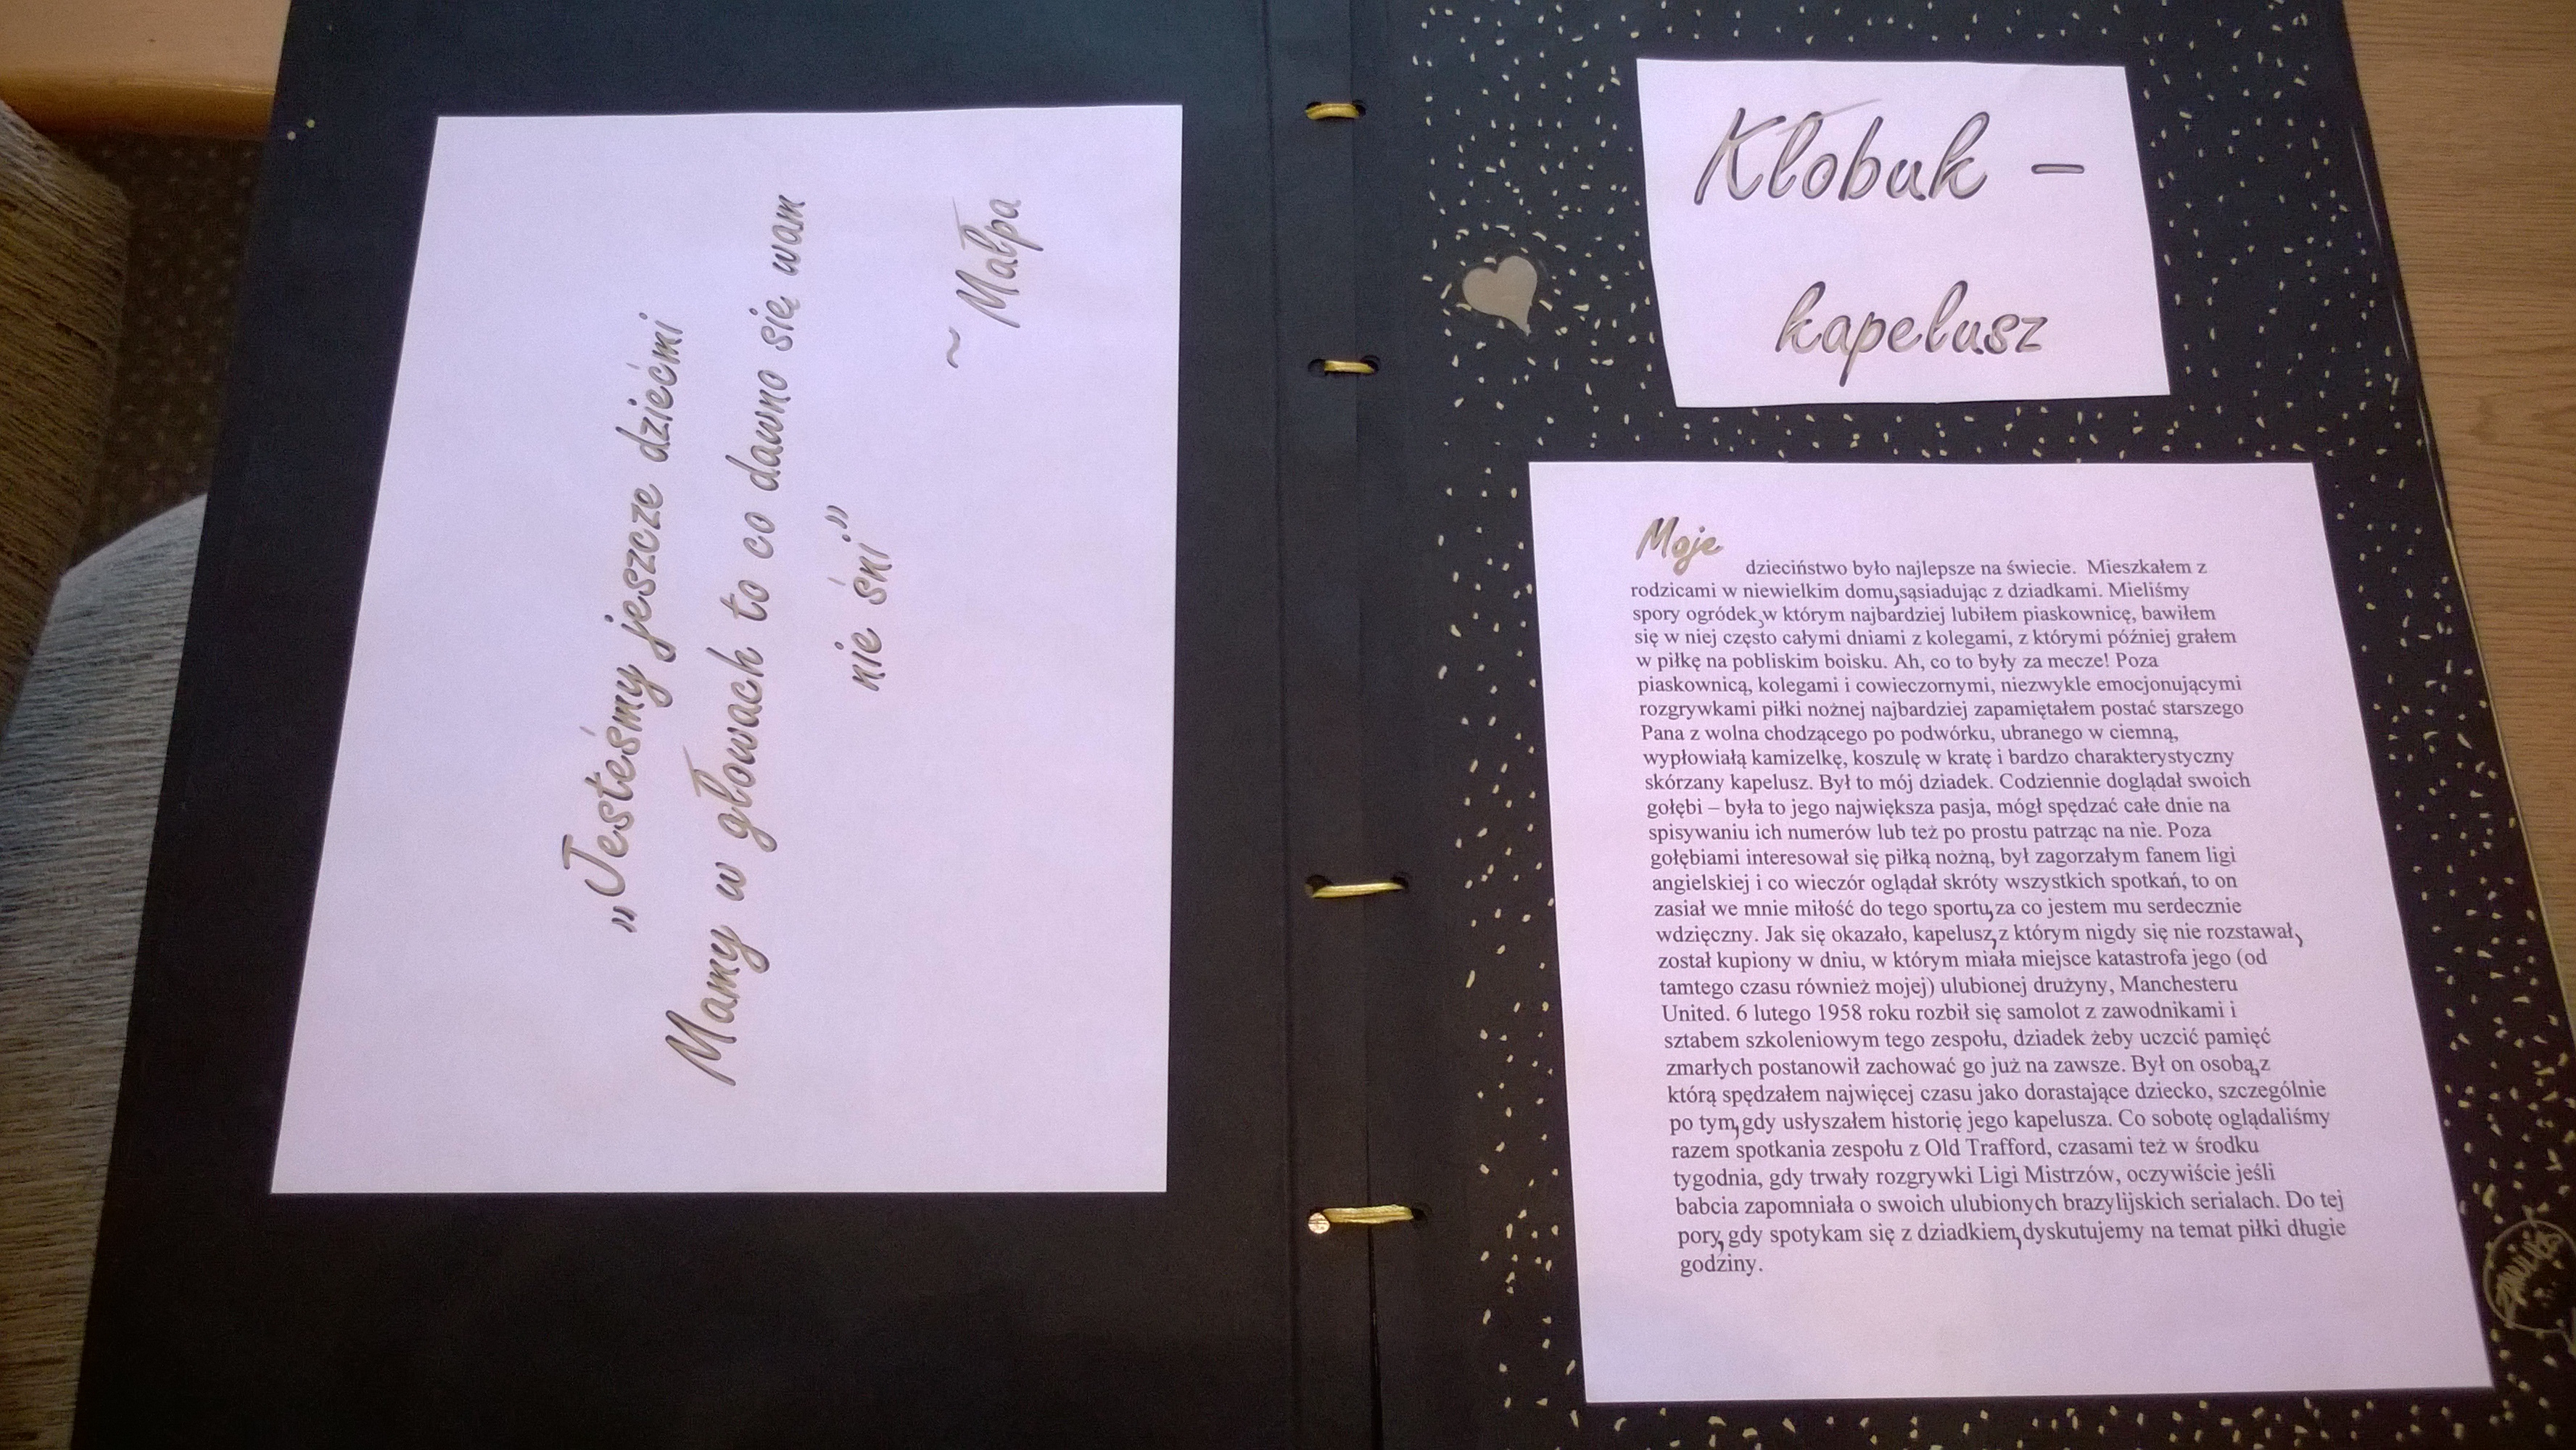 „Jesteśmy jeszcze dziećmi
Mamy w głowach to co dawno się wam
nie śni”
~ Małpa
Kłobuk –
kapelusz
Moje
dzieciństwo było najlepsze na świecie. Mieszkałem z
rodzicami w niewielkim domu,sąsiadując z dziadkami. Mieliśmy
spory ogródek,w którym najbardziej lubiłem piaskownicę, bawiłem
się w niej często całymi dniami z kolegami, z którymi później grałem
w piłkę na pobliskim boisku. Ah, co to były za mecze! Poza
piaskownicą, kolegami i cowieczornymi, niezwykle emocjonującymi
rozgrywkami piłki nożnej najbardziej zapamiętałem postać starszego
Pana z wolna chodzącego po podwórku, ubranego w ciemną,
wypłowiałą kamizelkę, koszulę w kratę i bardzo charakterystyczny
skórzany kapelusz. Był to mój dziadek. Codziennie doglądał swoich
gołębi – była to jego największa pasja, mógł spędzać całe dnie na
spisywaniu ich numerów lub też po prostu patrząc na nie. Poza
gołębiami interesował się piłką nożną, był zagorzałym fanem ligi
angielskiej i co wieczór oglądał skróty wszystkich spotkań, to on
zasiał we mnie miłość do tego sportu,za co jestem mu serdecznie
wdzięczny. Jak się okazało, kapelusz,z którym nigdy się nie rozstawał,
został kupiony w dniu, w którym miała miejsce katastrofa jego (od
tamtego czasu również mojej) ulubionej drużyny, Manchesteru
United. 6 lutego 1958 roku rozbił się samolot z zawodnikami i
sztabem szkoleniowym tego zespołu, dziadek żeby uczcić pamięć
zmarłych postanowił zachować go już na zawsze. Był on osobą,z
którą spędzałem najwięcej czasu jako dorastające dziecko, szczególnie
po tym,gdy usłyszałem historię jego kapelusza. Co sobotę oglądaliśmy
razem spotkania zespołu z Old Trafford, czasami też w środku
tygodnia, gdy trwały rozgrywki Ligi Mistrzów, oczywiście jeśli
babcia zapomniała o swoich ulubionych brazylijskich serialach. Do tej
pory,gdy spotykam się z dziadkiem,dyskutujemy na temat piłki długie
godziny.